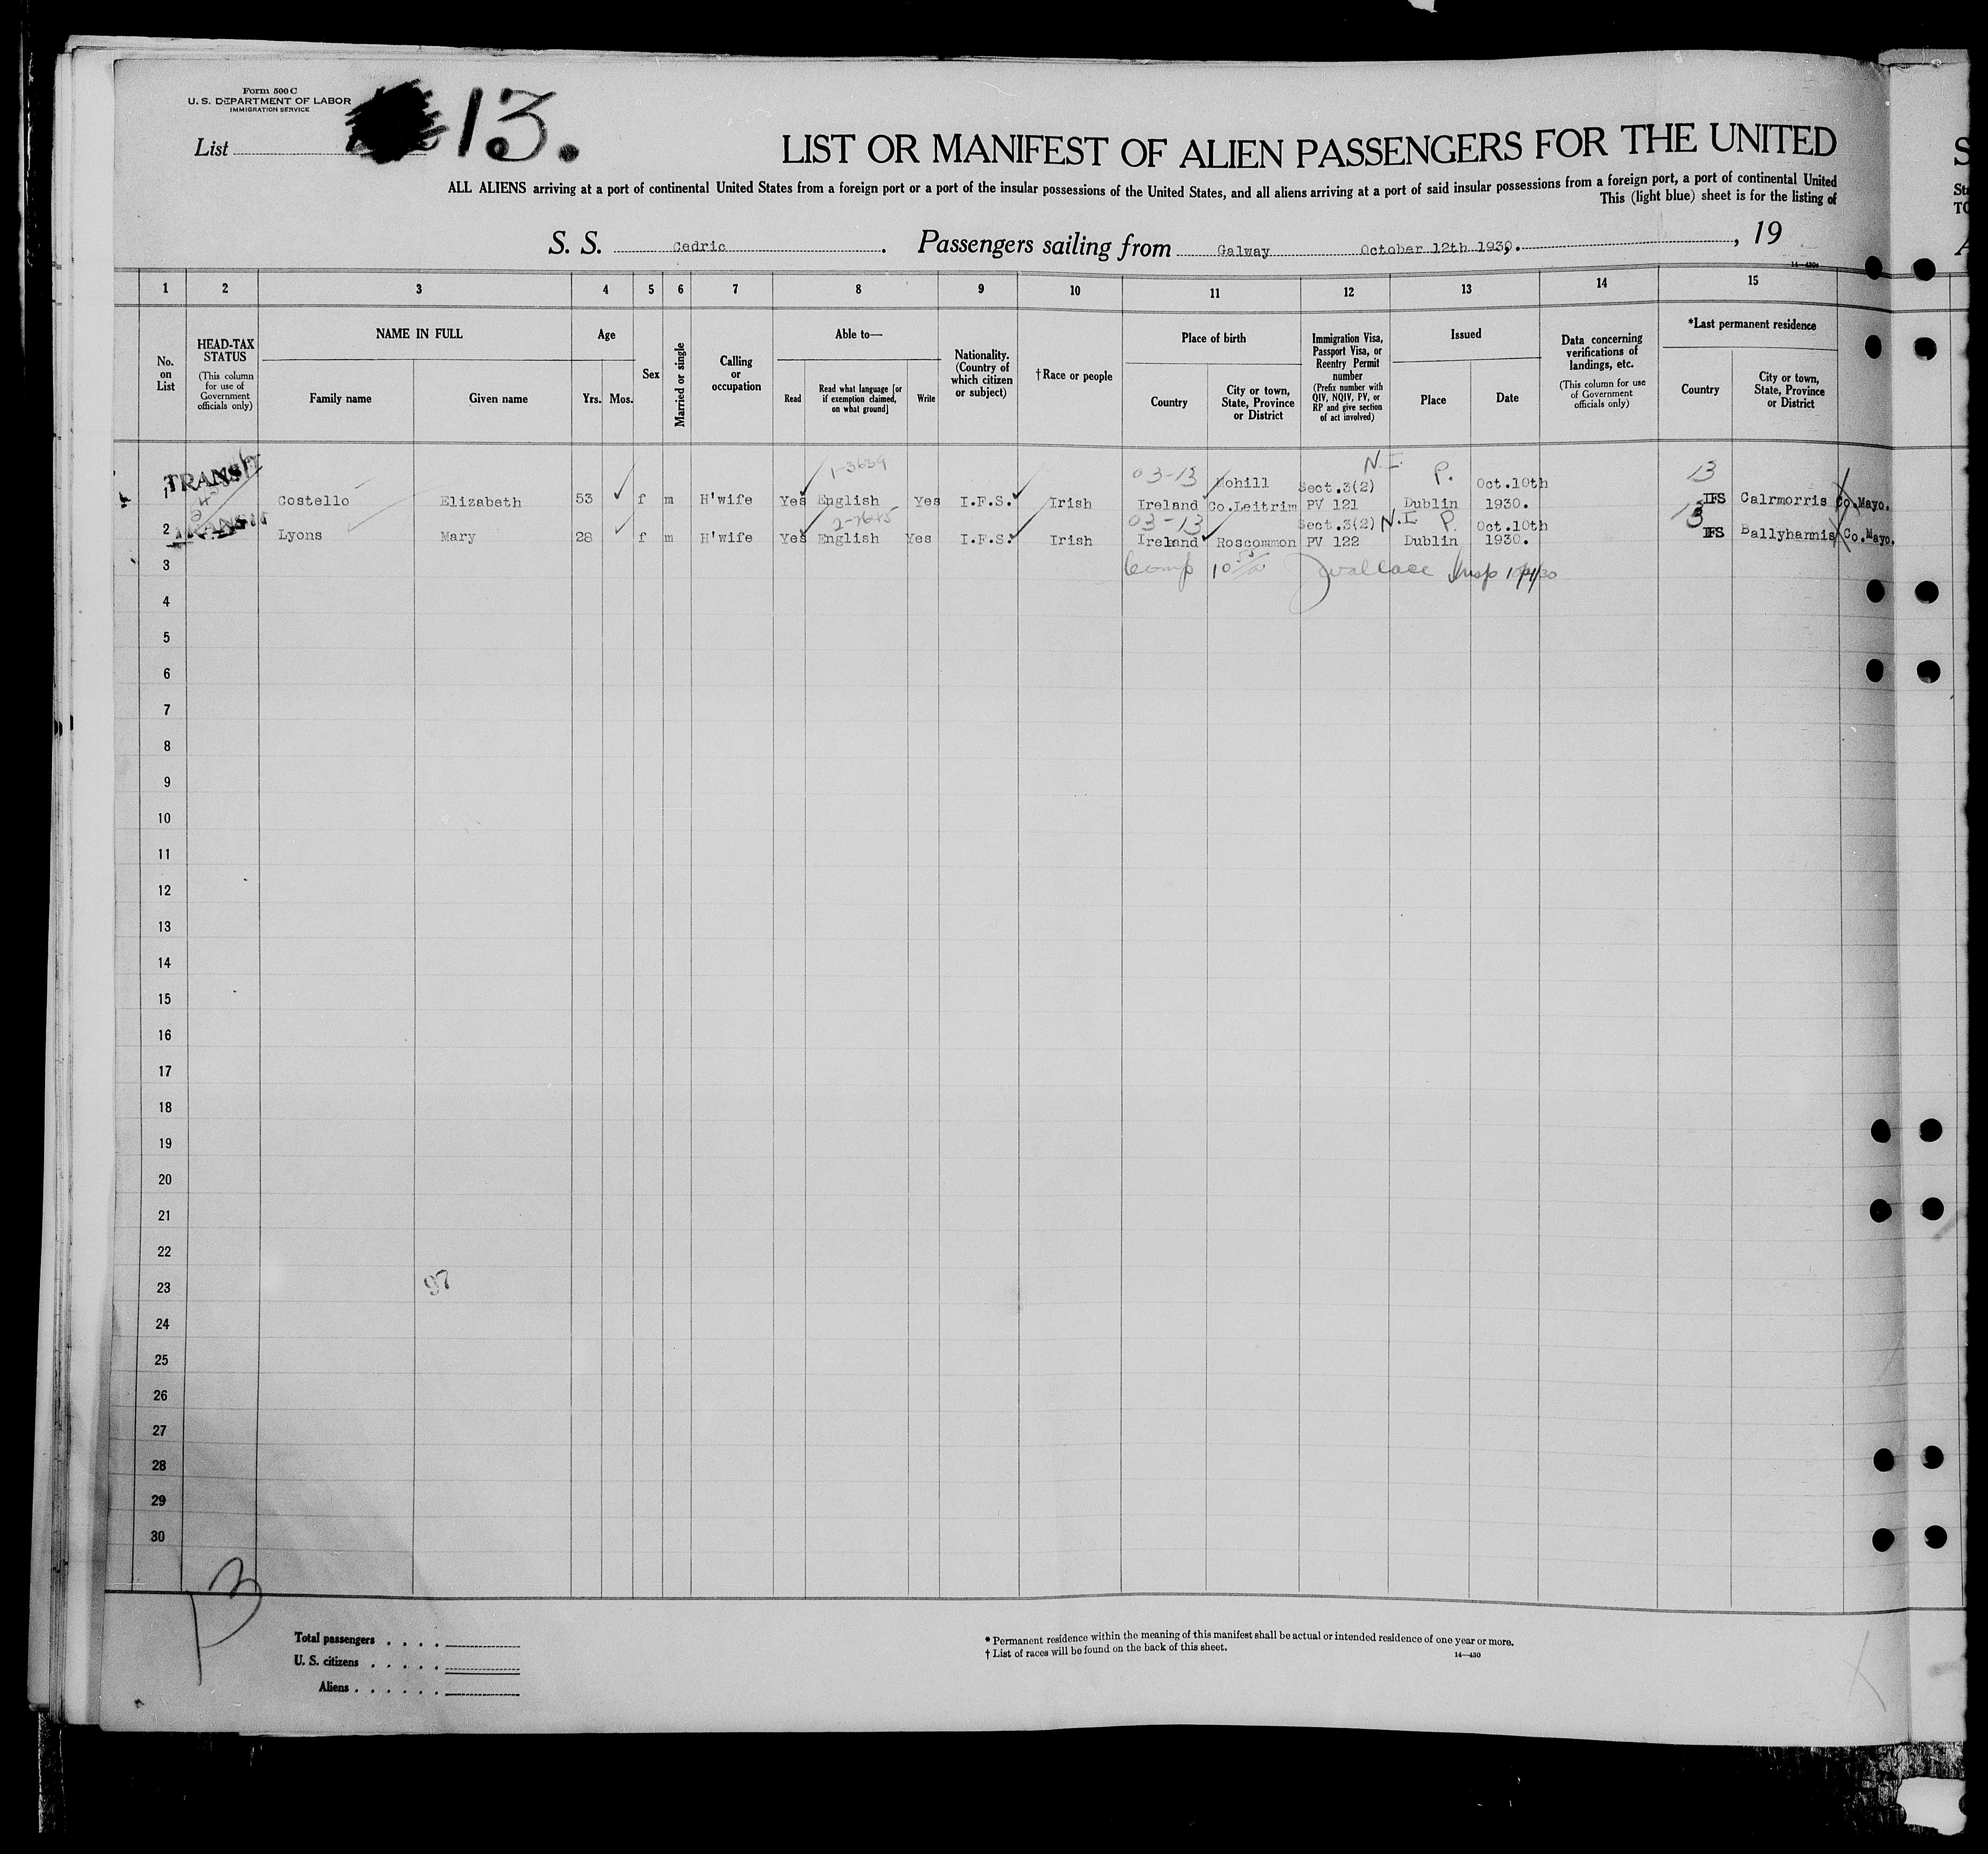 Form 500 C
U. S. DEPARTMENT OF LABOR
IMMIGRATION SERVICE
List 13.
LIST OR MANIFEST OF ALIEN PASSENGERS FOR THE UNITED
ALL ALIENS arriving at a port of continental United States from a foreign port or a port of the insular possessions of the United States, and all aliens arriving at a port of said insular possessions from a foreign port, a port of continental United
This (light blue) sheet is for the listing of
S. S. Cedric. Passengers sailing from Galway October 12th 1930, 19
14—430
1 2 3 4 5 6 7 8 9 10 11 12 13 14 15
No. on List
HEAD-TAX STATUS
(This column for use of Government officials only)
NAME IN FULL
Family name Given name
Age
Yrs. Mos.
Sex
Married or single
Calling or occupation
Able to—
Read
Read what language [or if exemption claimed, on what ground]
Write
Nationality. (Country of which citizen or subject)
†Race or people
Place of birth
Country
City or town, State, Province or District
Immigration Visa, Passport Visa, or Reentry Permit number
(Prefix number with QIV, NQIV, PV, or RP and give section of act involved)
Issued
Place Date
Data concerning verifications of landings, etc.
(This column for use of Government officials only)
*Last permanent residence
Country
City or town, State, Province or District
TRANSIT 1-3639 03-13 Mohill Sect.3(2) N.I. P. Oct.10th 13
1 Costello Elizabeth 53 f m H'wife Yes English Yes I.F.S. Irish Ireland Co.Leitrim PV 121 Dublin 1930. IFS Calrmorris Co.Mayo.
TRANSIT 2-7645 03-13 Sect.3(2) N.I P. Oct.10th 13
2 Lyons Mary 28 f m H'wife Yes English Yes I.F.S. Irish Ireland Roscommon PV 122 Dublin 1930. IFS Ballyhannis Co.Mayo.
3 Wallace Insp
4
5
6
7
8
9
10
11
12
13
14
15
16
17
18
19
20
21
22
23 97
24
25
26
27
28
29
30
13
Total passengers . . . .
U. S. citizens . . . . .
Aliens . . . . . .
* Permanent residence within the meaning of this manifest shall be actual or intended residence of one year or more.
† List of races will be found on the back of this sheet.
14—430